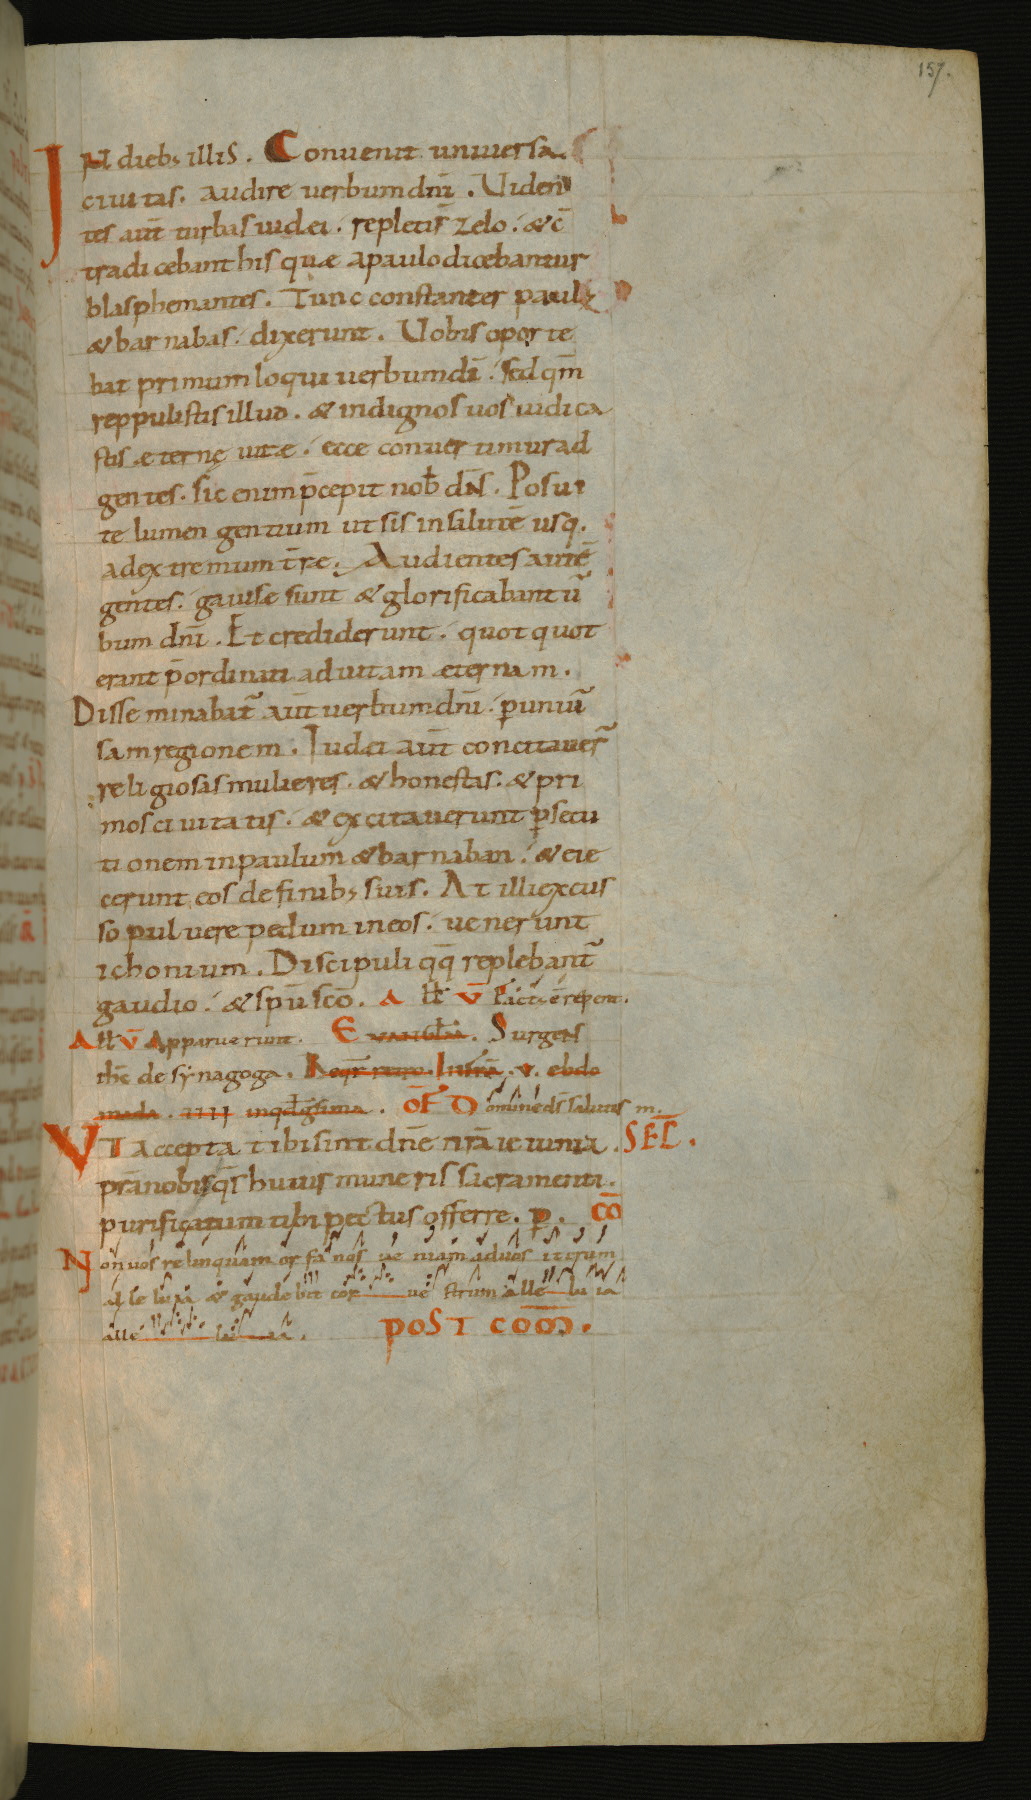 157.
IN dieb; illis. Conuenit uniuersa
ciuitas. audire uerbum dnī. Uiden
tes aūt turbas iudei. repleti s̄ zelo. & c̄
tradicebant his quæ a paulo dicebantur
blasphemantes. Tunc constanter paul;
& barnabas. dixerunt. Uobis oporte
bat primum loqui uerbum dī. sed qm̄
reppulistis illud. & indignos uos iudica
stis æternę uitæ. ecce conuertimur ad
gentes. sic enim p̄cepit nob̄ dn̄s. Posui
te lumen gentium ut sis in salutē usq.
ad extremum t̄ræ. Audientes autē
gentes. gauisæ sunt & glorificabant ū
bum dnī. Et crediderunt. quotquot
erant p̄ordinati ad uitam æternam.
Disseminabat̄ aūt uerbum dnī. p uniū
sam regionem. Iudei aūt concitauer̄
religiosas mulieres. & honestas. & pri
mos ciuitatis. & excitauerunt psecu
tionem in paulum & barnaban. & eie
cerunt eos de finib; suis. At illi excus
so puluere pedum in eos. uenerunt
ichonium. Discipuli qq̄ replebant̄
gaudio. & spū scō. A ll̄ V̄ Fact; ē repente.
All̄ V̄ Apparuerunt. EVANGL̄IA. Surgens
ih̄c de synagoga. Reqr̄ v. ebdo
mada. IIII in qd̄gsima. OF̄ Domine ds̄ salutis m.
VT accepta tibi sint dnē nr̄a ieiunia. SEC̄.
pr̄a nobis qs̄ huius muneris sacramenti.
purificatum tibi pectus offerre. p. CŌ
Non uos relinquam orfanos ueniam ad uos iterum
alleluia & gaudebit cor uestrum alleluia
alleluia. POST COM̄.